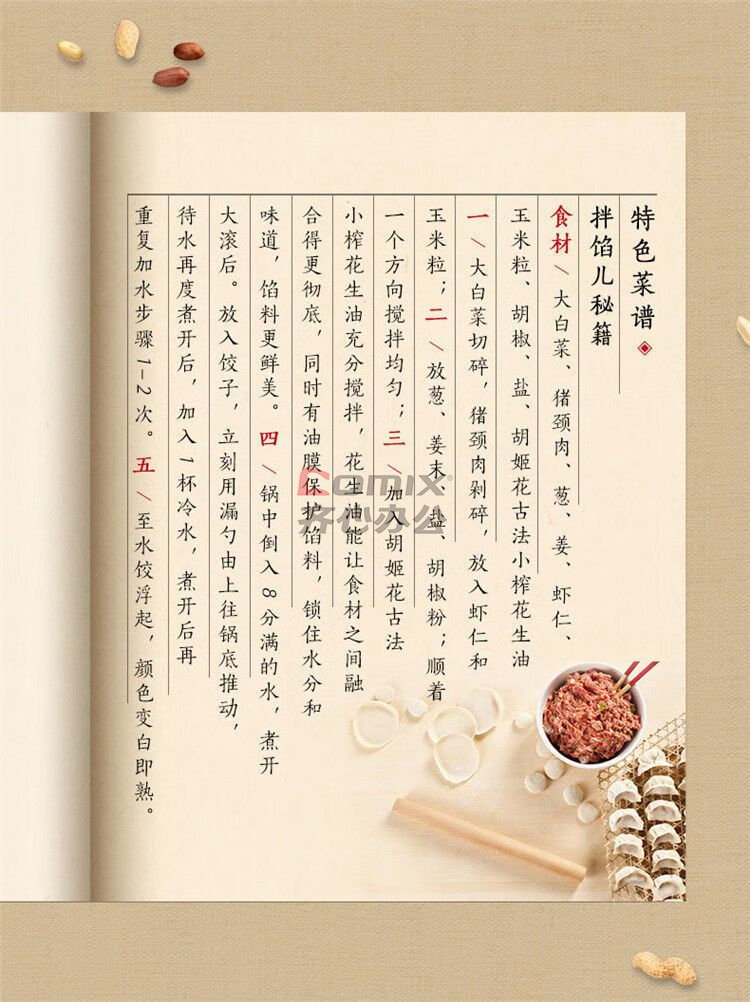 特色菜谱
拌馅儿秘籍
食材/大白菜、猪颈肉、葱、姜、虾仁、
玉米粒、胡椒、盐、胡姬花古法小榨花生油
一/大白菜切碎，猪颈肉剁碎，放入虾仁和
玉米粒；二/放葱、姜末、盐、胡椒粉；顺着
一个方向搅拌均匀；三/加入胡姬花古法
小榨花生油充分搅拌，花生油能让食材之间融
合得更彻底，同时有油膜保护馅料，锁住水分和
味道，馅料更鲜美。四/锅中倒入8分满的水，煮开
大滚后。放入饺子，立刻用漏勺由上往锅底推动，
待水再度煮开后，加入1杯冷水，煮开后再
重复加水步骤1-2次。五/至水饺浮起，颜色变白即熟。
Comix®
齐心办公